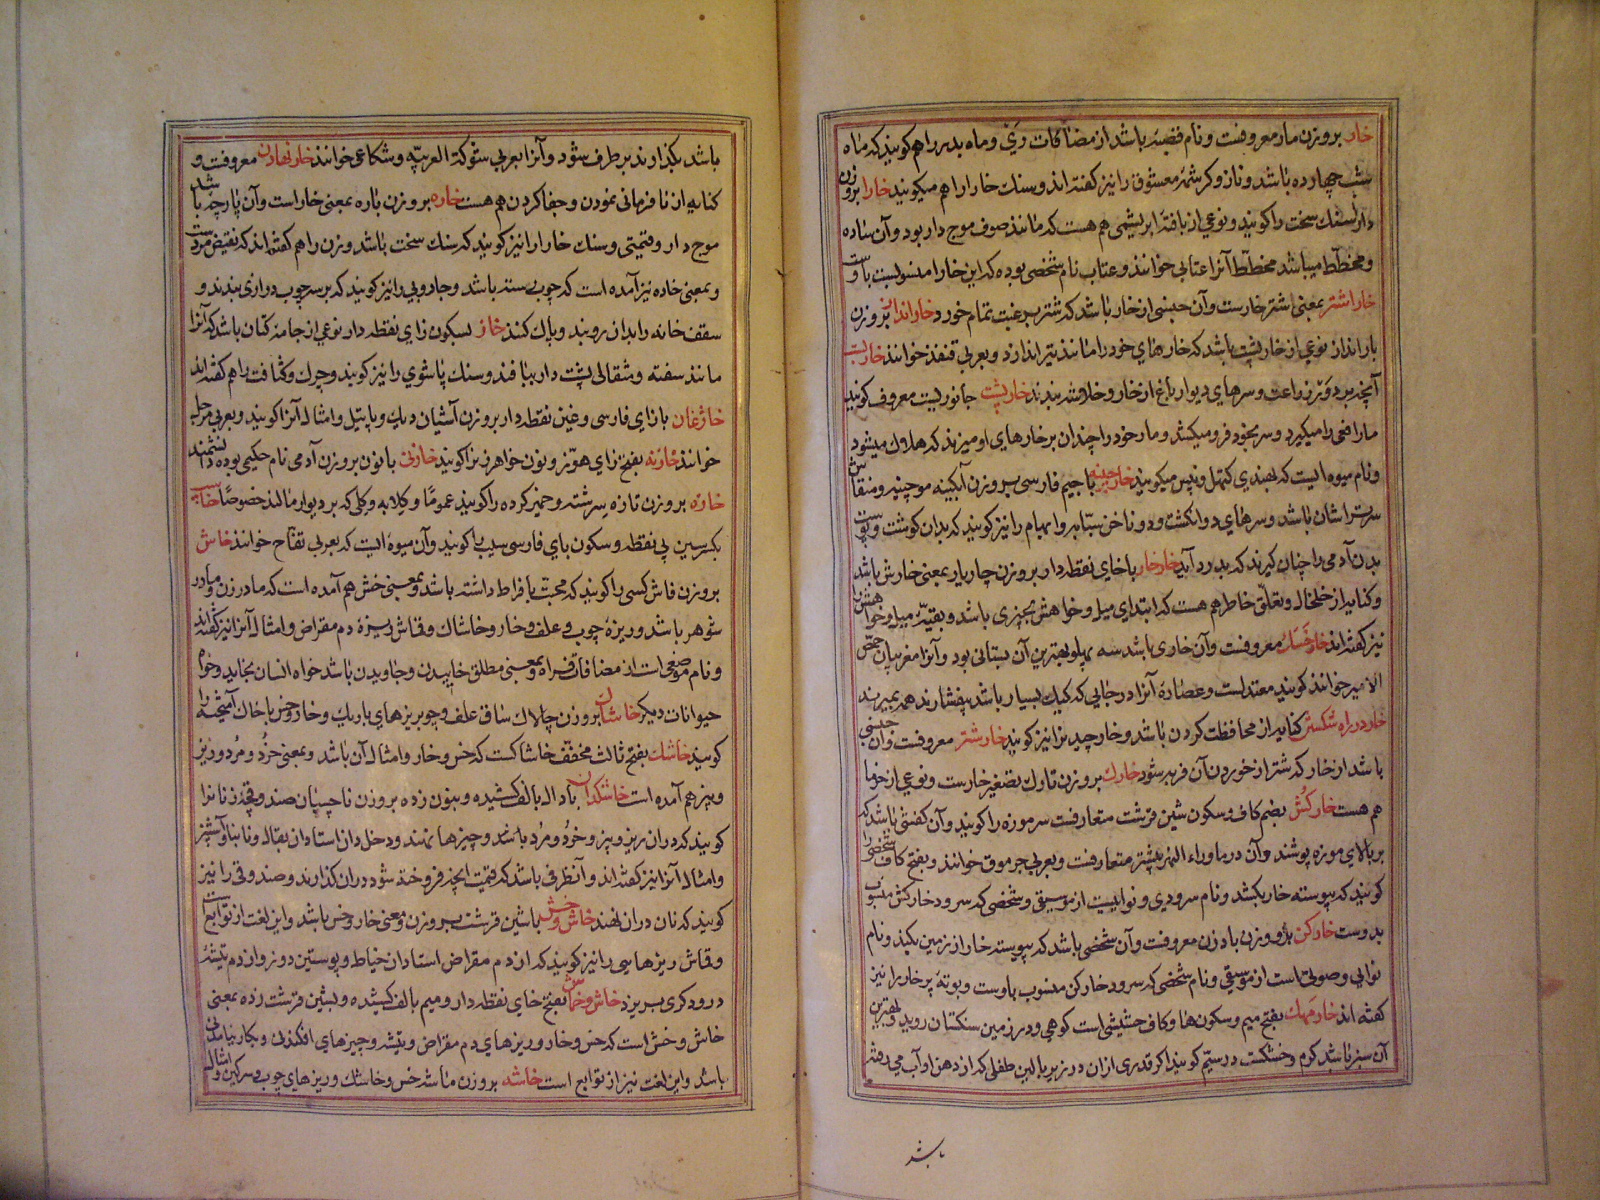 خار بروزن مار معروفست و نام قصبهٔ باشد از مضافات ری و ماه بدر را هم کویند که ماه
شب چهارده باشد و ناز و کرشمهٔ معشوق را نیز کفته اند و سنك خارا را هم میکویند خارا بروزن
دارا سنك سخت را کویند و نوعی از بافتهٔ ابریشمی هم هست که مانند صوف موج دار بود و آن ساده
و مخطط میباشد مخطط آنرا عتابی خوانند و عتاب نام شخصی بوده که این خارا منسوبست باوست
خاراشتر بمعنی اشتر خارست و آن جنسی از خار باشد که شتر برغبت تمام خورد خارانداز بروزن
بارانداز نوعی از خارپشت باشد که خارهای خود را مانند تیر اندازد و بعربی قنفذ خوانند خاربست
آنچه بر دور زراعت و سرهای دیوار باغ از خار و خلاشه بندند خارپشت جانوریست معروف کویند
مار افعی را میکیرد و سر بخود فرو میکشد و مار خود را چندان بر خارهای او میزند که هلاك میشود
و نام میوه ایست که بهندی کتهل و پنس میکویند خارچینه باجیم فارسی بروزن آبکینه موچینه و منقاش
سرتراشان باشد و سرهای دو انکشت و دو ناخن سبابه و ابهام را نیز کویند که بدان کوشت و پوست
بدن آدمی را چنان کیرند که بدرد آید خارخار باخای نقطه دار بروزن چاریار بمعنی خارش باشد
و کنایه از خلجان و تعلق خاطر هم هست که ابتدای میل و خواهش بچیزی باشد و بقیهٔ میل و خواهش را
نیز کفته اند خارخسك معروفست و آن خاری باشد سه پهلو بهترین آن بستانی بود و آنرا مغربیان حمص
الامیر خوانند کویند معتدلست و عصارهٔ آنرا در جایی که کیك بسیار باشد بیفشارند همه بمیرند
خار در راه شکستن کنایه از محافظت کردن باشد و خار چیدن را نیز کویند خارشتر معروفست و آن جنسی
باشد از خار که شتر از خوردن آن فربه شود خارك بروزن تارك تصغیر خارست و نوعی از خرما
هم هست خارکش بضم کاف و سکون شین قرشت متعارفست سرموزه را کویند و آن کفشی باشد که
بر بالای موزه پوشند و آن در ماوراء النهر بیشتر متعارفست و بعربی جرموق خوانند و بفتح کاف شخصی را
کویند که پیوسته خار بکشد و نام سرودی و نواییست از موسیقی و شخصی که سرود خارکش منسوب
بدوست خارکن بر وزن بادزن معروفست و آن شخصی باشد که پیوسته خار از زمین بکند و نام
نوایی و صوتی است از موسیقی و نام شخصی که سرود خارکن منسوب باوست و بوتهٔ پر خار را نیز
کفته اند خارمهك بفتح میم و سکون ها و کاف حشیشی است کوهی و در زمین سنکستان روید و بهترین
آن سبز باشد کرم و خشکست در سیم کویند اکر قدری ازان در زیر بالین طفلی که از دهن او آب می رفته
باشد
باشد بکذارند بر طرف شود و آنرا بعربی شوکة العربیه و شکاعی خوانند خار نهادن معروفست و
کنایه از نافرمانی نمودن و جفا کردن هم هست خاره بروزن باره بمعنی خارا است و آن پارچه باشد
موج دار و قیمتی و سنك خارا را نیز کویند که سنك سخت باشد و زن را هم کفته اند که نقیض مردست
و بمعنی خاده نیز آمده است که چوب بسته باشد و جاروبی را نیز کویند که بر سر چوب درازی بندند و
سقف خانه را بدان روبند و پاك کنند خاز بسکون زای نقطه دار نوعی از جامهٔ کتان باشد که آنرا
مانند سفته و مثقالی پشت دار ببافند و سنك پاشوی را نیز کویند و چرك و کثافت را هم کفته اند
خازغان بازای فارسی و غین نقطه دار بروزن آشیان دیك و پاتیل و امثال آنرا کویند و بعربی مرجل
خوانند خازنه بفتح زای هوز و نون خواهر زنرا کویند خازنی بانون بروزن آدمی نام حکیمی بوده دانشمند
خازه بروزن تازه سرشته و خمیر کرده را کویند عموما و کلابه و کلی که بر دیوار مالند خصوصا خاسب
بکسر سین بی نقطه و سکون بای فارسی سیب را کویند و آن میوه ایست که بعربی تفاح خوانند خاش
بروزن فاش کسی را کویند که محبت بافراط داشته باشد و بمعنی خش هم آمده است که مادر زن و مادر
شوهر باشد و ریزهٔ چوب و علف و خار و خاشاك و قماش ریزهٔ دم مقراض و امثال آنرا نیز کفته اند
و نام موضعی است از مضافات فراه و بمعنی مطلق خاییدن و جاویدن باشد خواه انسان بخاید و خواه
حیوانات دیکر خاشاك بروزن چالاك ساق علف و چوبریزهای باریك و خار و خس با خاك آمیخته را
کویند خاشك بفتح ثالث مخفف خاشاکست که خس و خار و امثال آن باشد و بمعنی خرد و مرد و ریز
و پیز هم آمده است خاشکدان بادال بالف کشیده و بنون زده بروزن ناچسپان صندوقچهٔ زنانرا
کویند که دران ریز و پیز و خرد و مرد باشد و چیزها نهند و دخل دان استادان بقال و نانبا و آشپز
و امثال آنرا نیز کفته اند و آن ظرفی باشد که قیمت آنچه فروخته شود دران کذارند و صندوقی را نیز
کویند که نان دران نهند خاش و خش باشین قرشت بروزن و معنی خار و خس باشد و این لغت از توابع است
و قماش ریزهایی را نیز کویند که از دم مقراض استادان خیاط و پوستین دوز و از دم تیشهٔ
درودکری بریزد خاش و خماش بفتح خای نقطه دار و میم بالف کشیده و بشین قرشت زده بمعنی
خاش و خش است که خس و خار و ریزهای دم مقراض و تیشه و چیزهای افکندنی و بکار نیامدنی
باشد و این لغت نیز از توابع است خاشه بروزن ماشه خس و خاشاك و ریزهای چوب و سرکین و امثال